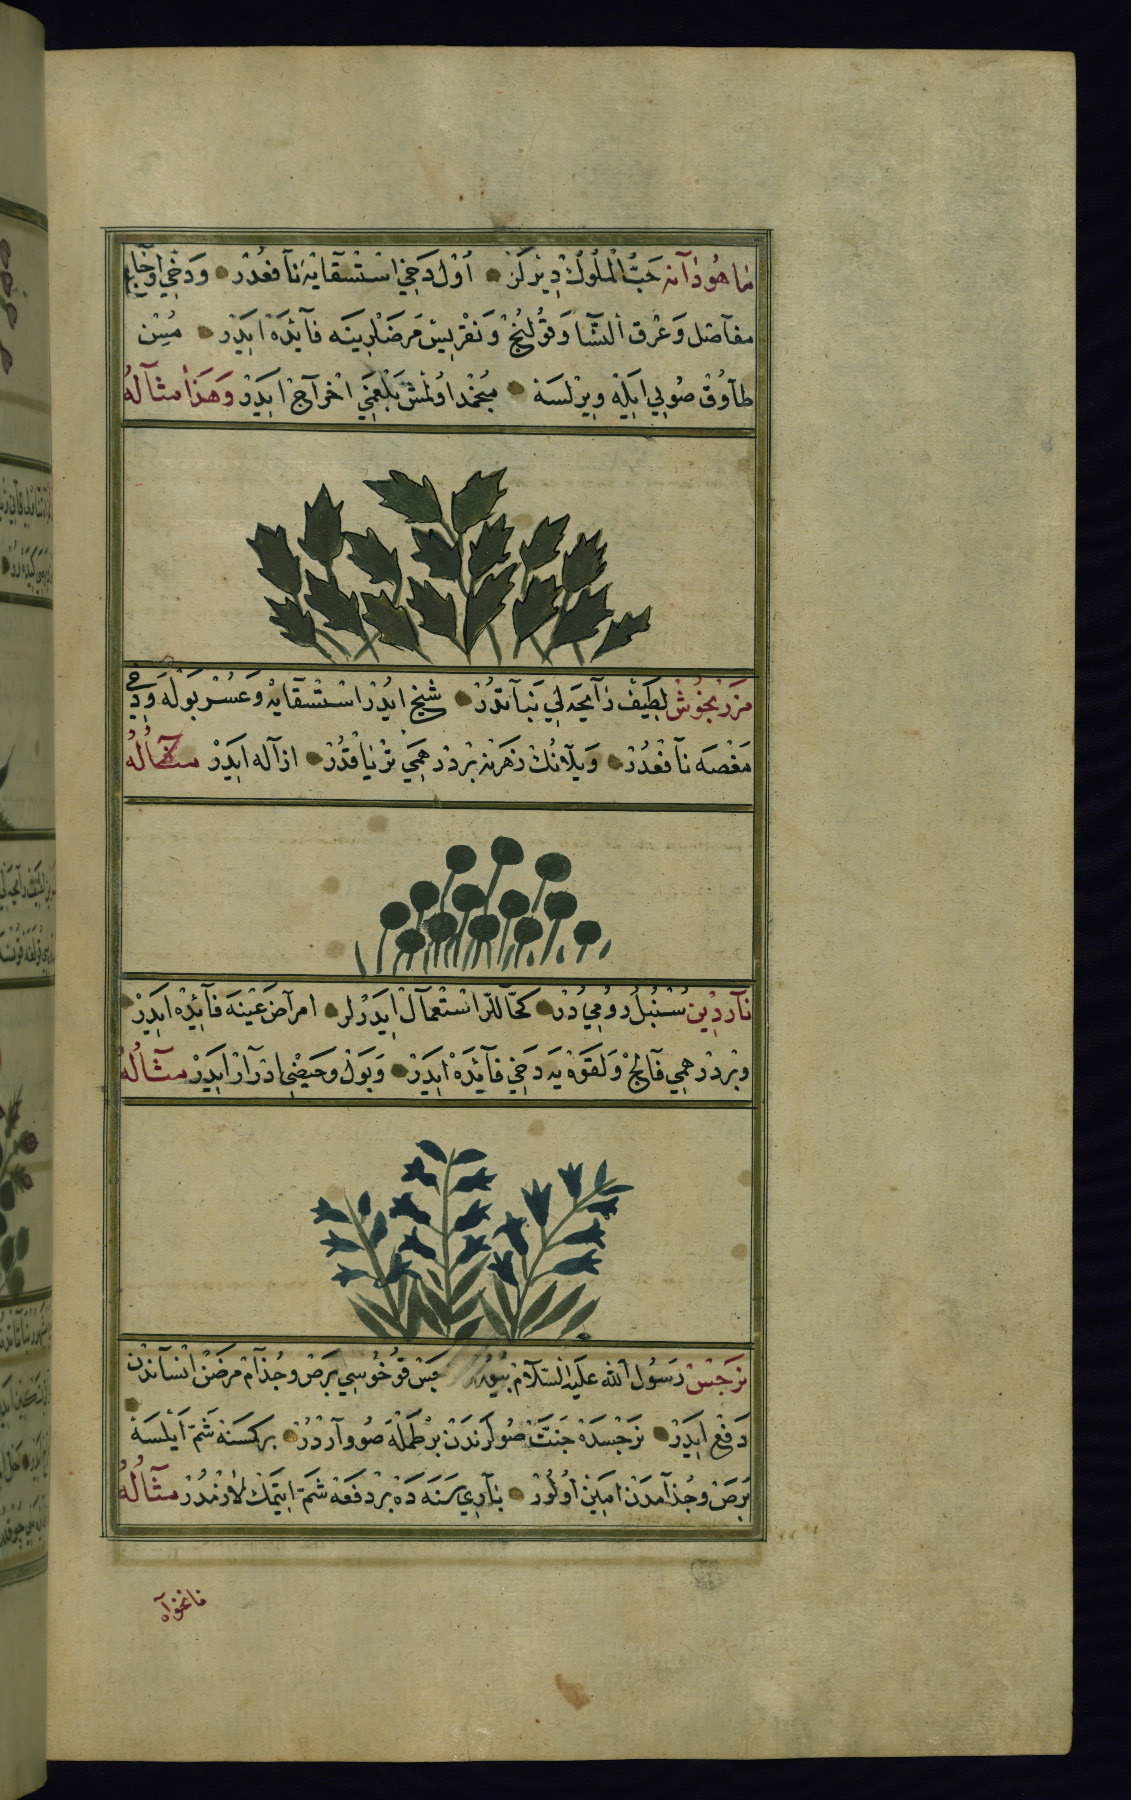 ماهودانه حب الملوك ديرلر اول دخي استسقايه نافعدر ودخي اوجاع
مفاصل وعرق النسا وقولنج ونقريس مرضلرينه فائده ايدر
طاوق صويي ايله ويرلسه منجمد اولمش بلغمي اخراج ايدر وهذا مثاله
مرزنجوش لطيف رايحه لي نباتدر شيخ ايدر استسقايه وعسر بوله ودخي
مغصه نافعدر ويلانك زهرينه بر درهمي ترياقدر ازاله ايدر مثاله
ناردين سنبل روميدر كحاللر استعمال ايدرلر امراض عينه فائده ايدر
وبر درهمي فالج ولقوه يه دخي فائده ايدر وبول وحيضي ادرار ايدر مثاله
نرجس رسول الله عليه السلام نرجس قوخوسي برص وجذام مرضن انساندن
دفع ايدر نرجسده جنت صولرندن بر طمله صو واردر بر كسنه شم ايلسه
برص وجذامدن امين اولور باري سنه ده بر دفعه شم ايتمك لازمدر مثاله
نانخواه